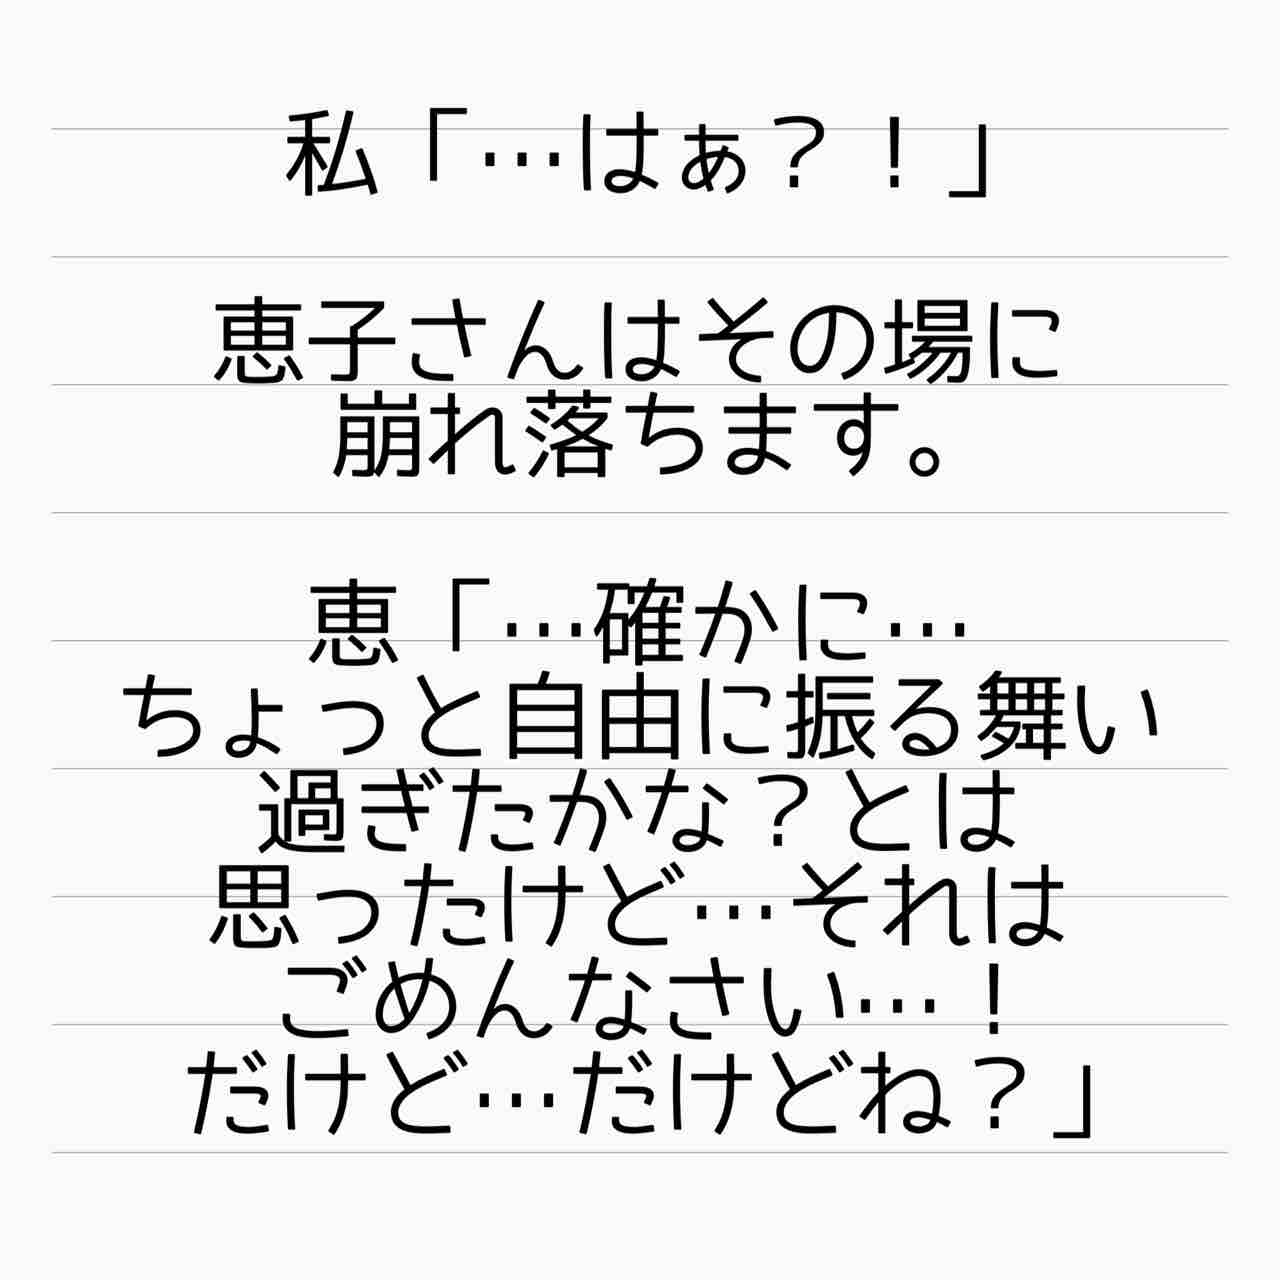 私「…はぁ？！」
恵子さんはその場に
崩れ落ちます。
恵「…確かに…
ちょっと自由に振る舞い
過ぎたかな？とは
思ったけど…それは
ごめんなさい…！
だけど…だけどね？」